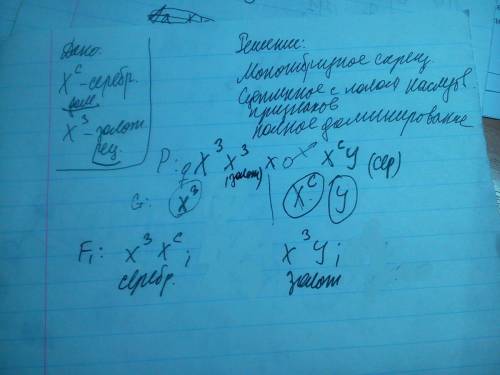 Дано:
X^C - серебр.
дом.
X^З - золот.
рец.
Решение:
Моногибридное скрещ.
Сцепленное с полом наследов.
признаков
полное доминирование
P: ♀ X^З X^З x ♂ X^C Y (сер)
(золот)
G: X^З | X^C Y
F₁: X^З X^C ; X^З Y ;
серебр. золот